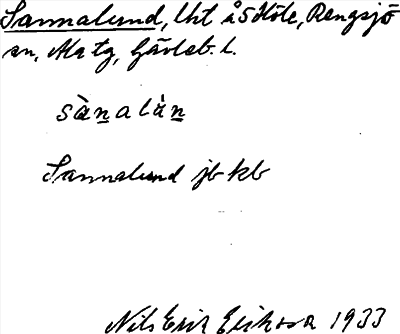 Sannalund, lht å S Höle, Rengsjö
sn, Ala tg, Gävleb. l.
sànalùn
Sannalund jb kb
Nils Erik Eriksson 1933